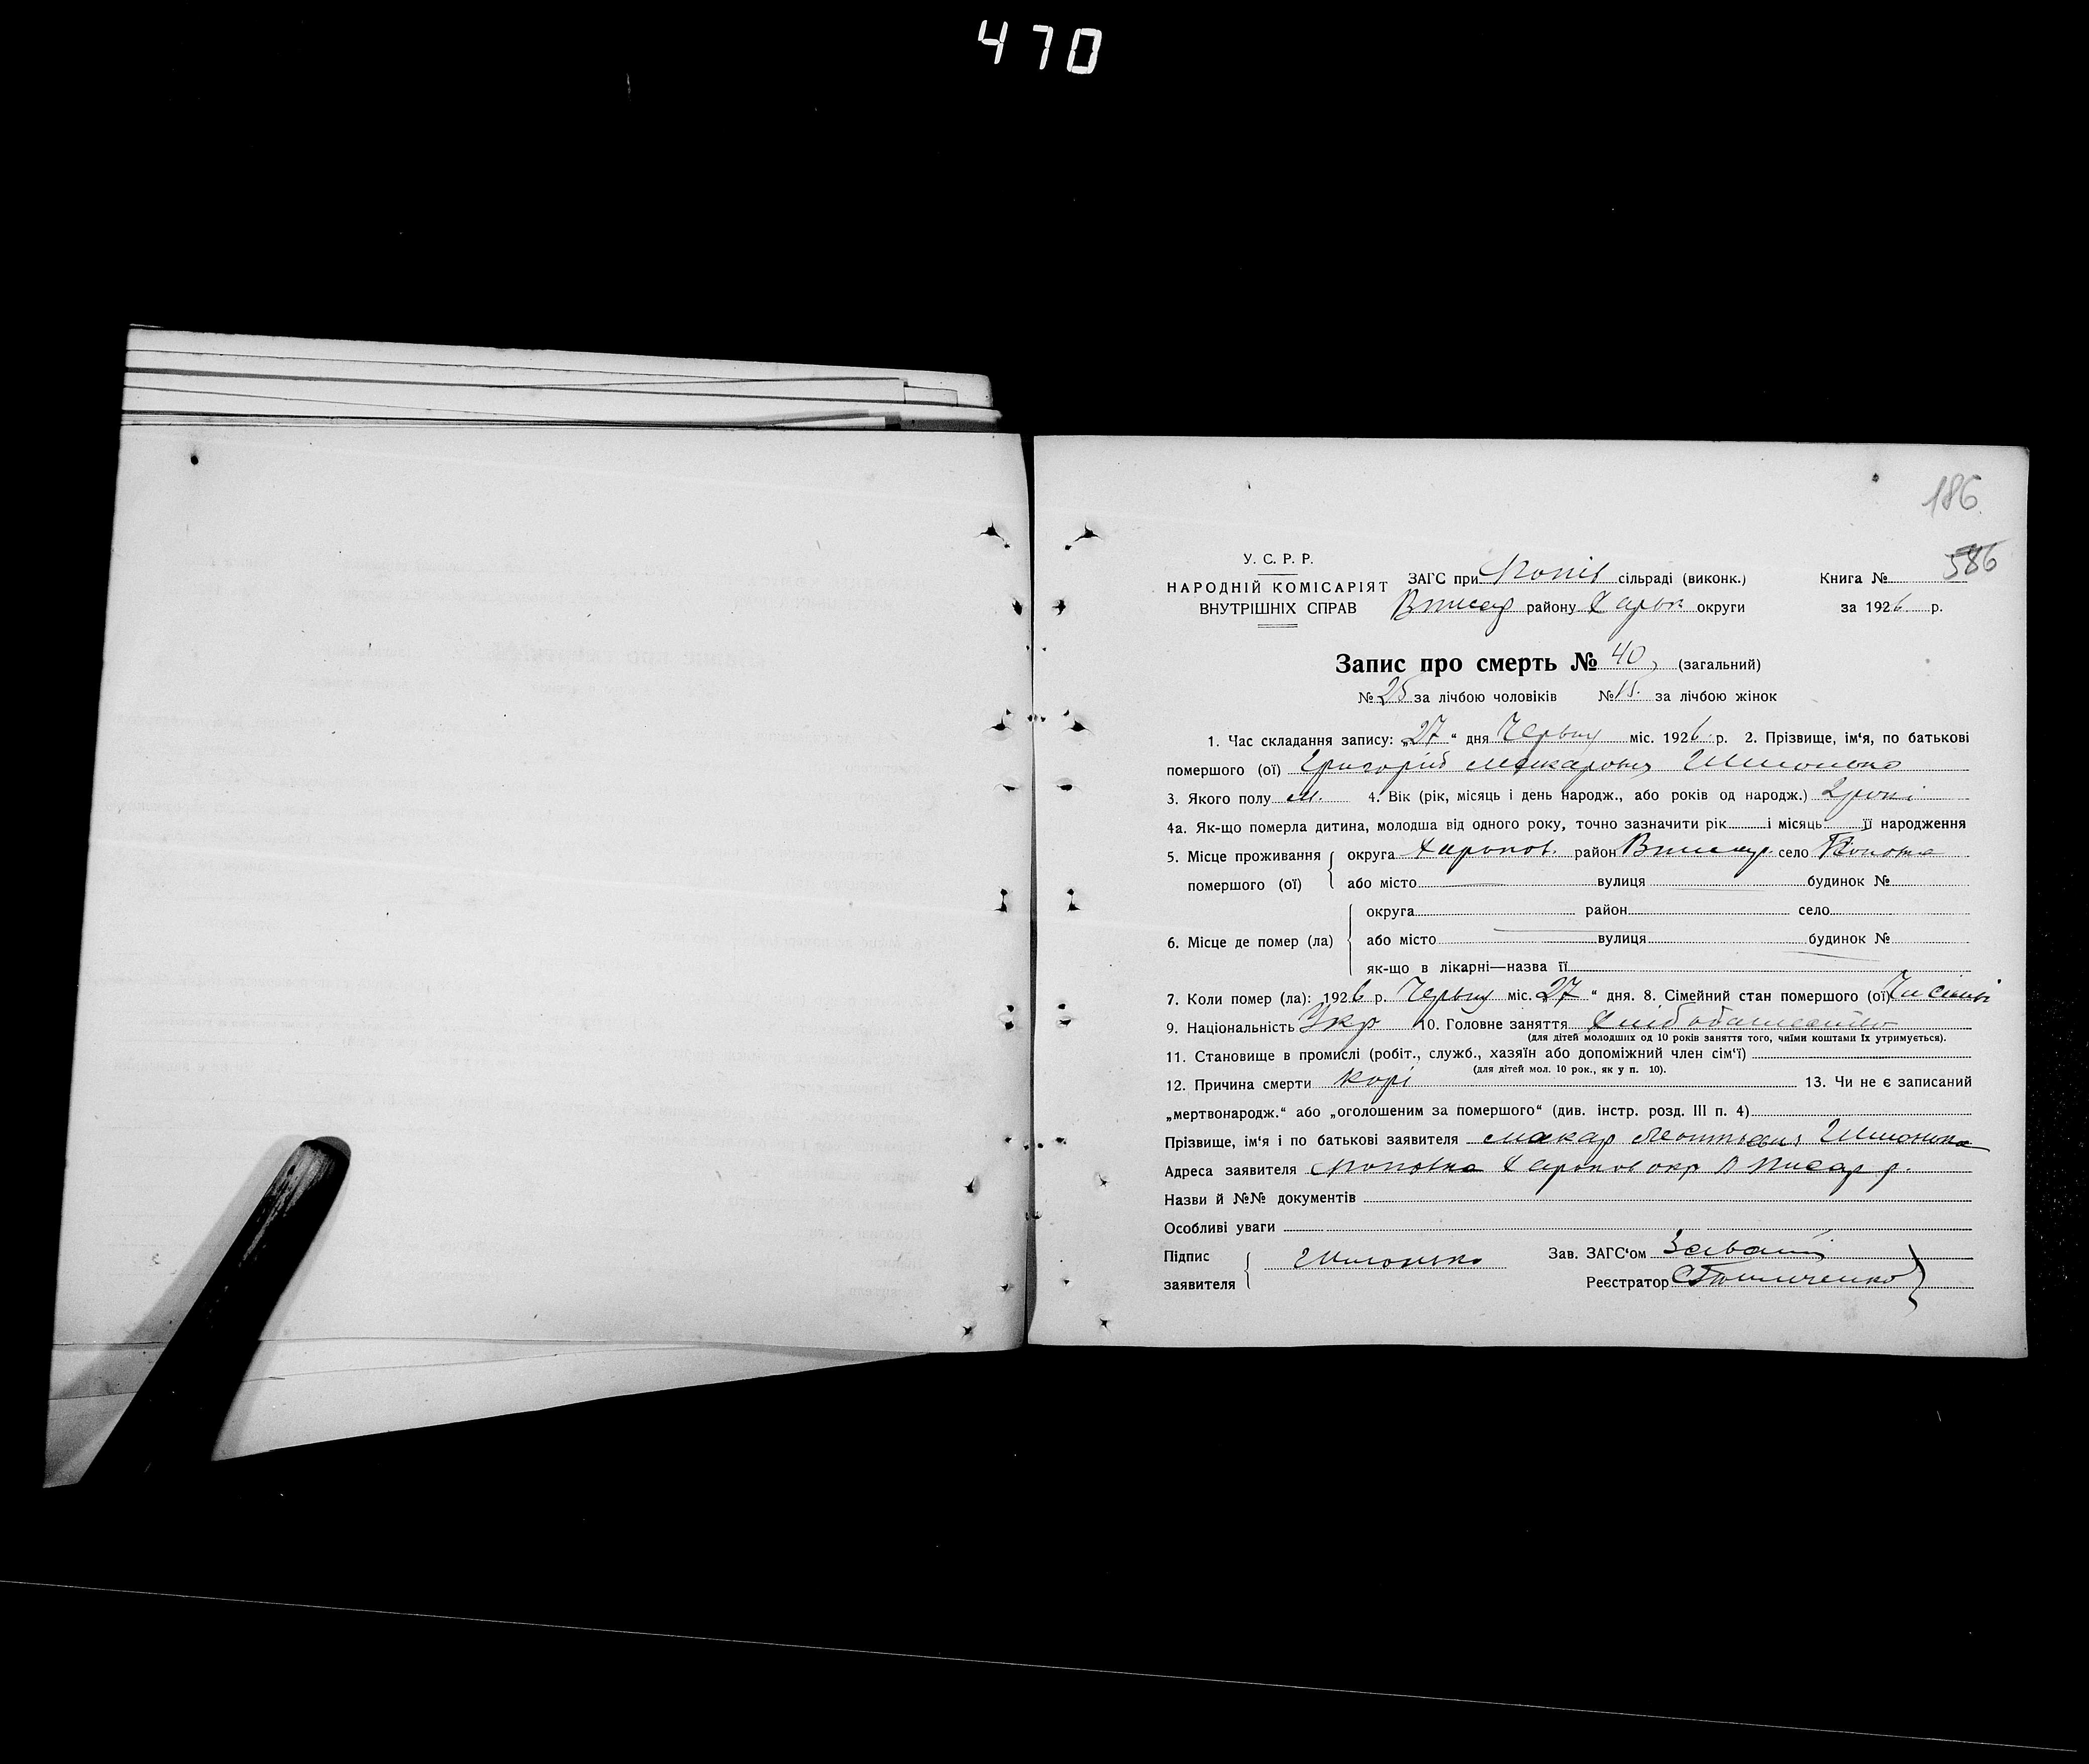 470
186
586
У. С. Р. Р.
НАРОДНІЙ КОМІСАРІЯТ
ВНУТРІШНІХ СПРАВ
ЗАГС при Попів сільраді (виконк.)
Книга №
району Харьк округи
за 1926 р.
Запис про смерть № 40, (загальний)
№ 25 за лічбою чоловіків № 15. за лічбою жінок
1. Час складання запису: „27“ дня Червня міс. 1926 р. 2. Прізвище, ім'я, по батькові
помершого (ої) Григорій Макарович
3. Якого полу м. 4. Вік (рік, місяць і день народж., або років од народж.) 2 роки
4а. Як-що померла дитина, молодша від одного року, точно зазначити рік і місяць її народження
5. Місце проживання помершого (ої)
округа Харьков. район село Поповка
або місто вулиця будинок №
6. Місце де помер (ла)
округа район село
або місто вулиця будинок №
як-що в лікарні—назва її
7. Коли помер (ла): 1926 р. Червня міс. 27 “ дня. 8. Сімейний стан помершого (ої)
9. Національність Укр 10. Головне заняття Хлібобатество
(для дітей молодших од 10 років заняття того, чиїми коштами їх утримується).
11. Становище в промислі (робіт., служб., хазяїн або допоміжний член сім'ї)
(для дітей мол. 10 рок., як у п. 10).
12. Причина смерти Корі 13. Чи не є записаний
„мертвонародж.“ або „оголошеним за помершого“ (див. інстр. розд. III п. 4)
Прізвище, ім'я і по батькові заявителя Макар
Адреса заявителя Поповка
Назви й №№ документів
Особливі уваги
Підпис заявителя
Зав. ЗАГС'ом
Реєстратор